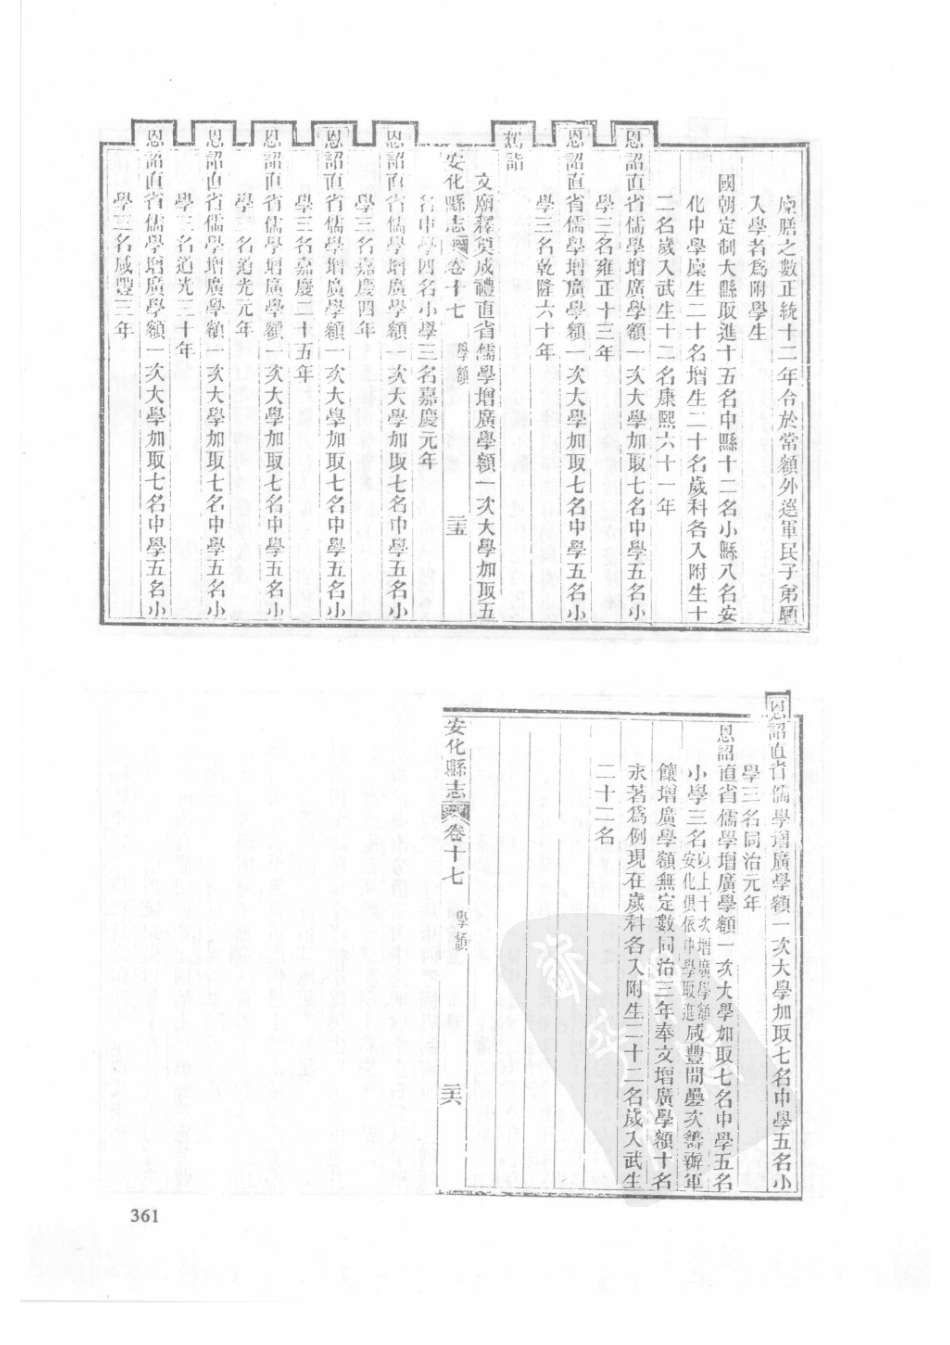 廩膳之數正統十二年令於常額外選軍民子弟願
入學者爲附學生
國朝定制大縣取進十五名中縣十二名小縣八名安
化中學廩生二十名增生二十名歲科各入附生十
二名歲入武生十二名康熙六十一年
恩詔直省儒學增廣學額一次大學加取七名中學五名小
學三名雍正十三年
恩詔直省儒學增廣學額一次大學加取七名中學五名小
學三名乾隆六十年
駕詣
文廟釋奠成禮直省儒學增廣學額一次大學加取五
安化縣志 卷十七 學額 三五
名中學四名小學三名嘉慶元年
恩詔直省儒學增廣學額一次大學加取七名中學五名小
學三名嘉慶四年
恩詔直省儒學增廣學額一次大學加取七名中學五名小
學三名嘉慶二十五年
恩詔直省儒學增廣學額一次大學加取七名中學五名小
學三名道光元年
恩詔直省儒學增廣學額一次大學加取七名中學五名小
學三名道光三十年
恩詔直省儒學增廣學額一次大學加取七名中學五名小
學三名咸豐三年
恩詔直省儒學增廣學額一次大學加取七名中學五名小
學三名同治元年
恩詔直省儒學增廣學額一次大學加取七名中學五名
小學三名以上十次增廣學額安化俱依中學取進咸豐間疊次籌辦軍
饟增廣學額無定數同治三年奉文增廣學額十名
永著爲例現在歲科各入附生二十二名歲入武生
二十二名
安化縣志 卷十七 學額 三六
361